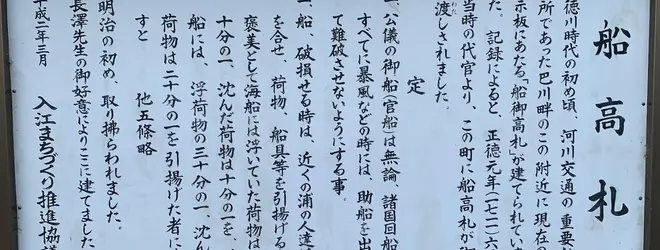 船高札
徳川時代の初め頃、河川交通の重要
所であった巴川畔のこの附近に現在
示板にあたる「船御高札」が建てられてい
た。記録によると、正徳元年(一七一一)六
当時の代官より、この町に船高札が御
渡しされました。
定
一、公儀の御船(官船)は無論、諸国回船
すべてに暴風などの時には、助船を出
て難破させないようにする事。
一、船、破損せる時は、近くの浦の人達
を合せ、荷物、船具等を引揚げる
褒美として海船には浮いていた荷物は
十分の一、沈んだ荷物は十分の一を、
船には、浮荷物の三十分の一、沈ん
荷物は二十分の一を引揚げた者に
すと 他五條略
明治の初め、取り拂らわれました。
長澤先生の御好意によりここに建てました
平成二年三月 入江まちづくり推進協